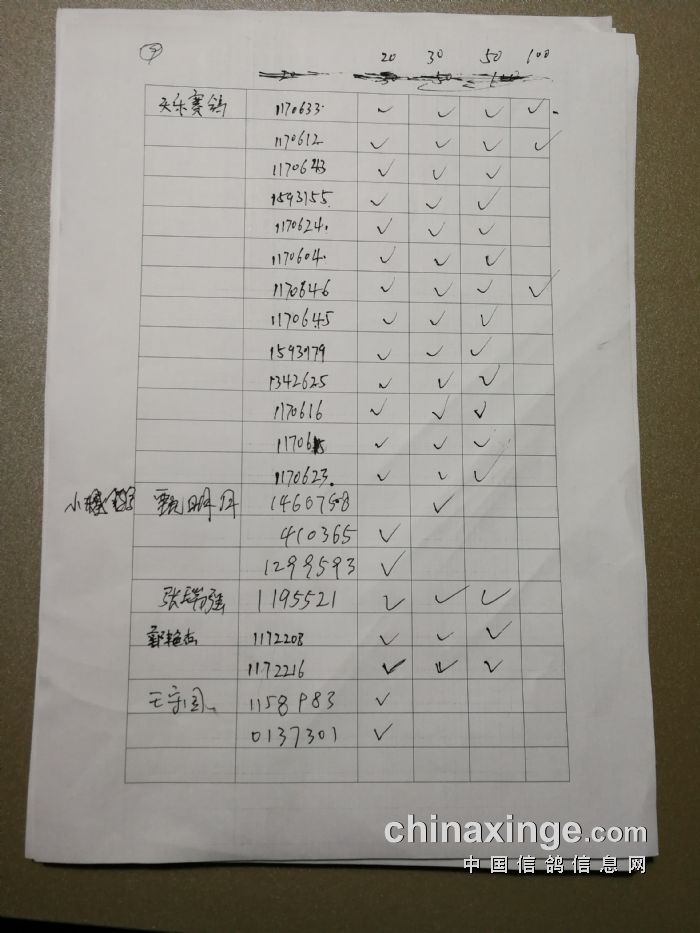 ⑨ 20 30 50 100
天乐赛鸽 1170633 ✓ ✓ ✓ ✓
1170612 ✓ ✓ ✓ ✓
1170643 ✓ ✓ ✓
1593155 ✓ ✓ ✓
1170624 ✓ ✓ ✓
1170604 ✓ ✓ ✓
1170646 ✓ ✓ ✓ ✓
1170645 ✓ ✓ ✓
1593179 ✓ ✓ ✓
1342625 ✓ ✓ ✓
1170616 ✓ ✓ ✓
✓ ✓ ✓
1170623 ✓ ✓ ✓
甄明 1460758 ✓
410365 ✓
1299593 ✓
张瑞强 1195521 ✓ ✓ ✓
郭艳杰 1172208 ✓ ✓ ✓
1172216 ✓ ✓ ✓
王守国 1158983 ✓
0137301 ✓
chinaxinge.com
中国信鸽信息网